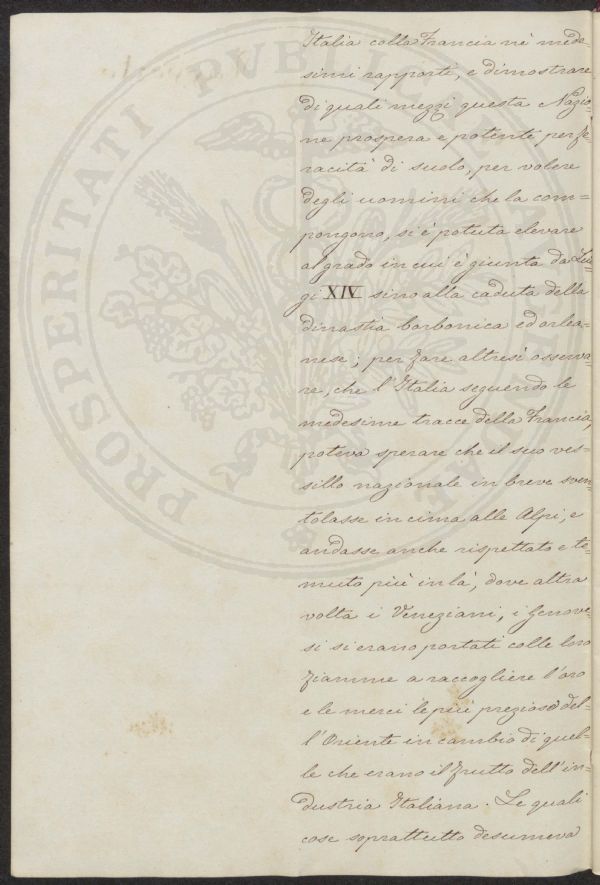 Italia colla Francia nè mede-
simi rapporti, e dimostrare
di quali mezzi questa Nazio-
ne prospera e potente per fe-
racità di suolo, per volere
degli uomini che la com=
pongono, si è potuta elevare
al grado in cui è giunta da Lui
gi XIV sino alla caduta della
dinastia borbonica ed orlea-
nese; per fare altresì osserva-
re, che l'Italia seguendo le
medesime tracce della Francia,
poteva sperare che il suo ves-
sillo nazionale in breve sven-
tolasse in cima alle Alpi, e
andasse anche rispettato e te-
muto più in là, dove altra
volta i Veneziani, i Genove-
si si erano portati colle loro
fiamme a raccogliere l'oro
e le merci le più preziose del-
l'Oriente in cambio di quel-
le che erano il frutto dell'in-
dustria Italiana. Le quali
cose soprattutto desumeva
PROSPERITATI PVBLICAE AVGENDAE